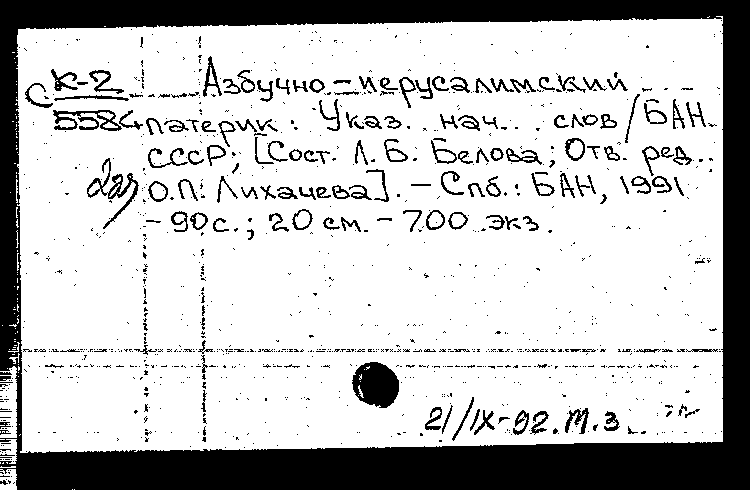 С К-2 Азбучно-иерусалимский
5584 патерик: Указ. нач. слов / БАН
СССР; [Сост. Л. Б. Белова; Отв. ред.
2аз О.П. Лихачева]. - Спб.: БАН, 1991
- 90 с.; 20 см. - 700 экз.
21/IX-92. М.З.